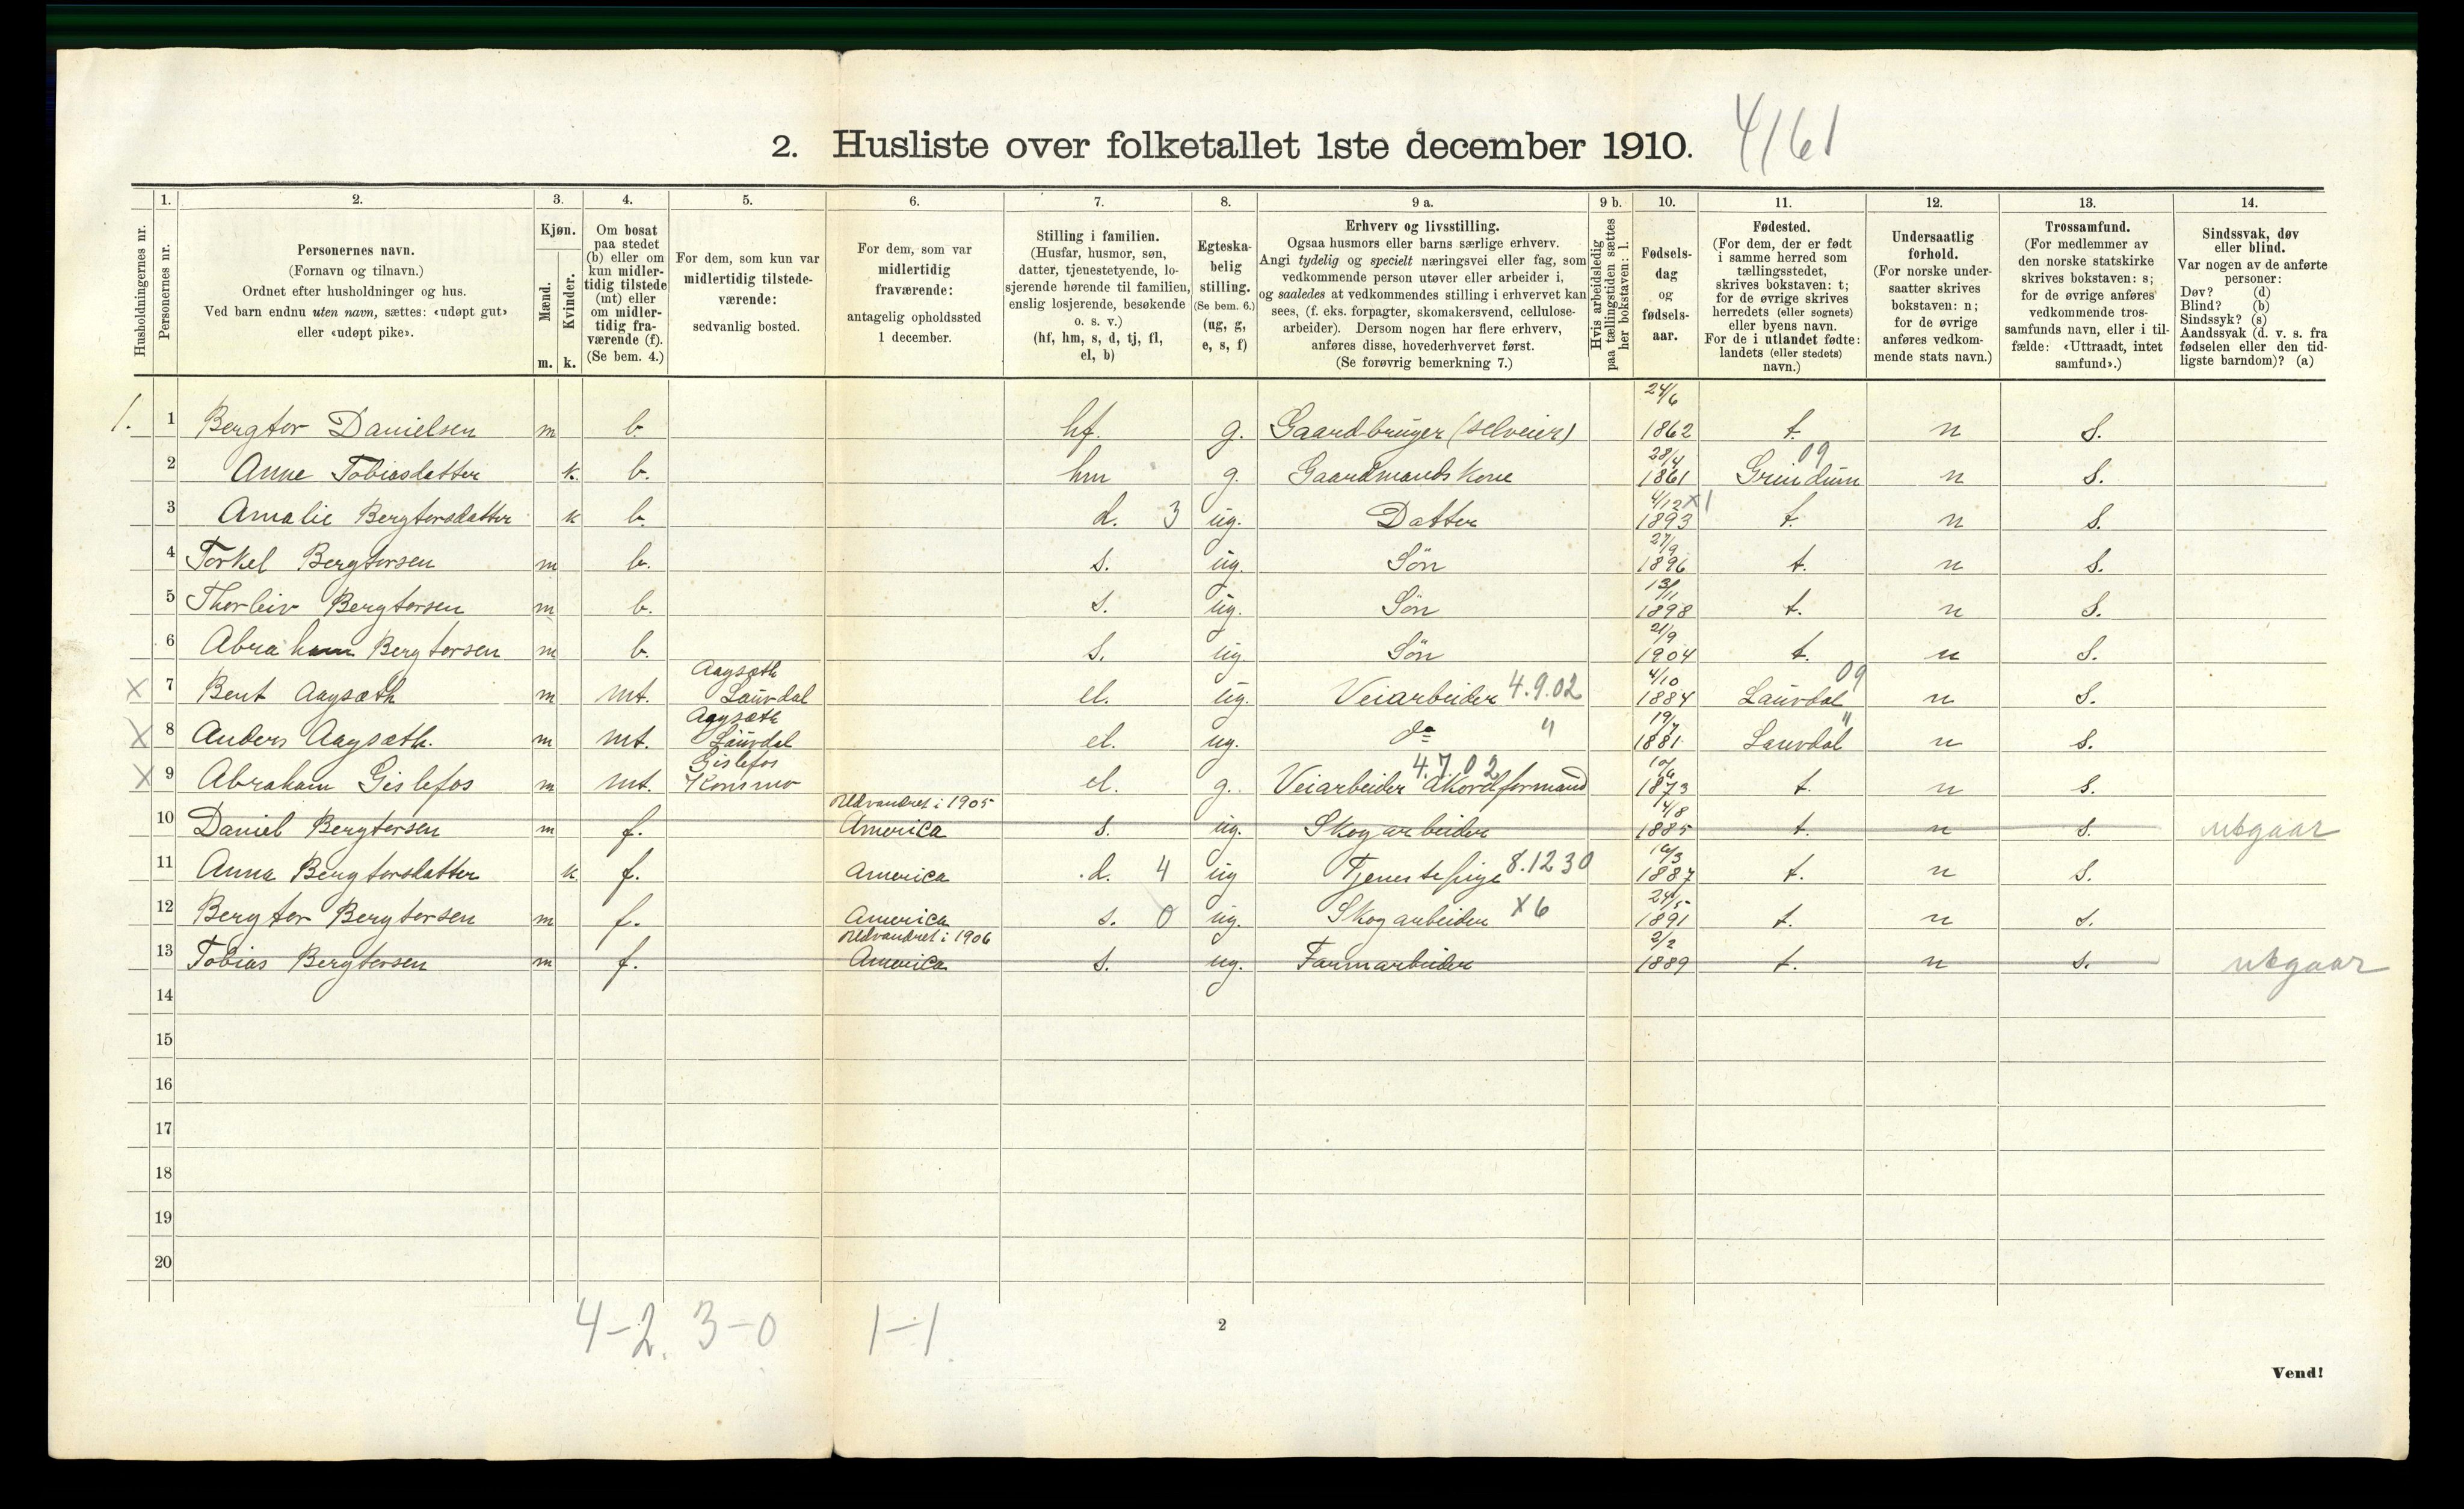 2. Husliste over folketallet 1ste december 1910. 4161
Husholdningernes nr.
1. Personernes nr.
2. Personernes navn.
(Fornavn og tilnavn.)
Ordnet efter husholdninger og hus.
Ved barn endnu uten navn, sættes: «udøpt gut»
eller «udøpt pike».
3. Kjøn.
Mænd. m.
Kvinder. k.
4. Om bosat
paa stedet
(b) eller om
kun midler-
tidig tilstede
(mt) eller
om midler-
tidig fra-
værende (f).
(Se bem. 4.)
5. For dem, som kun var
midlertidig tilstede-
værende:
sedvanlig bosted.
6. For dem, som var
midlertidig
fraværende:
antagelig opholdssted
1 december.
7. Stilling i familien.
(Husfar, husmor, søn,
datter, tjenestetyende, lo-
sjerende hørende til familien,
enslig losjerende, besøkende
o. s. v.)
(hf, hm, s, d, tj, fl,
el, b)
8. Egteska-
belig
stilling.
(Se bem. 6.)
(ug, g,
e, s, f)
9 a. Erhverv og livsstilling.
Ogsaa husmors eller barns særlige erhverv.
Angi tydelig og specielt næringsvei eller fag, som
vedkommende person utøver eller arbeider i,
og saaledes at vedkommendes stilling i erhvervet kan
sees, (f. eks. forpagter, skomakersvend, cellulose-
arbeider). Dersom nogen har flere erhverv,
anføres disse, hovederhvervet først.
(Se forøvrig bemerkning 7.)
9 b. Hvis arbeidsledig
paa tællingstiden sættes
her bokstaven: l.
10. Fødsels-
dag
og
fødsels-
aar.
11. Fødested.
(For dem, der er født
i samme herred som
tællingsstedet,
skrives bokstaven: t;
for de øvrige skrives
herredets (eller sognets)
eller byens navn.
For de i utlandet fødte:
landets (eller stedets)
navn.)
12. Undersaatlig
forhold.
(For norske under-
saatter skrives
bokstaven: n;
for de øvrige
anføres vedkom-
mende stats navn.)
13. Trossamfund.
(For medlemmer av
den norske statskirke
skrives bokstaven: s;
for de øvrige anføres
vedkommende tros-
samfunds navn, eller i til-
fælde: «Uttraadt, intet
samfund».)
14. Sindssvak, døv
eller blind.
Var nogen av de anførte
personer:
Døv? (d)
Blind? (b)
Sindssyk? (s)
Aandssvak (d. v. s. fra
fødselen eller den tid-
ligste barndom)? (a)
1. 1 Bergtor Danielsen m b. hf. g. Gaardbruger (selveier) 24/6 1862 t. n s.
2 Anne Tobiasdatter k. b. hm g. Gaardmandskone 28/4 1861 Grindum 09 n s.
3 Amalie Bergtorsdatter k b. d. 3 ug. Datter 4/12 1893 x1 t. n s.
4 Torkel Bergtorsen m b. s. ug. Sön 27/9 1896 t. n s.
5 Thorleiv Bergtorsen m b. s. ug. Sön 13/11 1898 t. n s.
6 Abraham Bergtorsen m b. s. ug. Sön 21/9 1904 t. n s.
X 7 Bent Aagsæth m mt. Aagsæth Lauvdal el. ug. Veiarbeider 4.9.02 4/10 1884 Lauvdal 09 n s.
X 8 Anders Aagsæth. m mt. Aagsæth Lauvdal el. ug. do " 19/7 1881 Lauvdal " n s.
X 9 Abraham Gislefos m mt. Gislefos Konsmo el. g. Veiarbeider Akordformand 4.7.02 1873 t. n s.
10 Daniel Bergtorsen m f. Udvandret i 1905 America s. ug. Skogarbeider 14/8 1885 t. n s. utgaar
11 Anna Bergtorsdatter k f. America d. 4 ug Tjenestepige 8.12 30 16/3 1887 t. n s.
12 Bergtor Bergtorsen m f. America s. 0 ug. Skogarbeider X6 24/5 1891 t. n s.
13 Tobias Bergtorsen m f. Udvandret i 1906 America s. ug. Farmarbeider 2/2 1889 t. n s. utgaar
14
15
16
17
18
19
20
4-2. 3-0 1-1.
2
Vend!